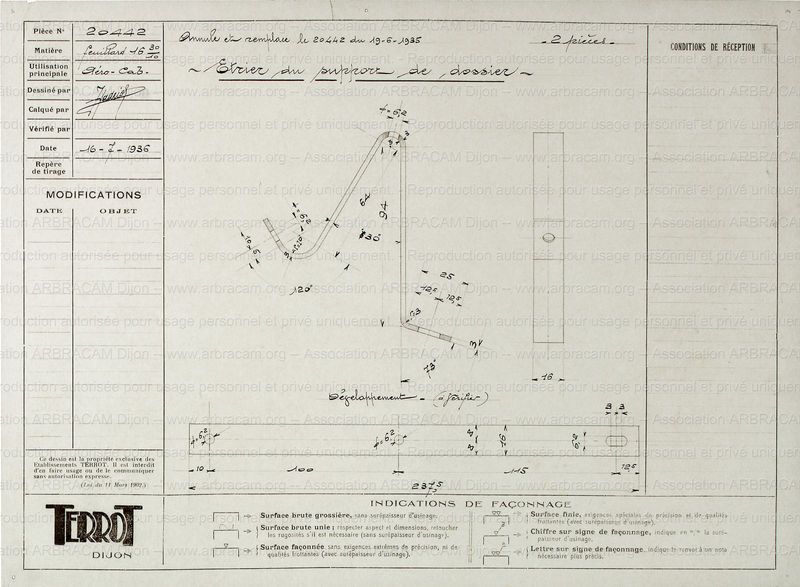 Pièce N° 20442
Matière feuillard 16 30/10
Utilisation principale Aéro-Cab.
Dessiné par
Calqué par
Vérifié par
Date 16-7-1936
Repère de tirage
MODIFICATIONS
DATE OBJET
Annule et remplace le 20442 du 19-6-1935
- 2 pièces -
~ Etrier du support de dossier ~
CONDITIONS DE RÉCEPTION
64
94
120°
25
12,5 12,5
3
16
Développement - (à vérifier)
3 3
10
100
115
12,5
237,5
Ce dessin est la propriété exclusive des
Etablissements TERROT. Il est interdit
d'en faire usage ou de le communiquer
sans autorisation expresse.
(Loi du 11 Mars 1902.)
TERROT
DIJON
INDICATIONS DE FAÇONNAGE
Surface brute grossière, sans surépaisseur d'usinage.
Surface brute unie ; respecter aspect et dimensions, retoucher
les rugosités s'il est nécessaire (sans surépaisseur d'usinage).
Surface façonnée sans exigences extrêmes de précision, ni de
qualités frottantes (avec surépaisseur d'usinage).
Surface finie, exigences spéciales de précision et de qualités
frottantes (avec surépaisseur d'usinage).
Chiffre sur signe de façonnage, indique en "/" la suré-
paisseur d'usinage.
Lettre sur signe de façonnage indique le renvoi à un nota
nécessaire plus précis.
www.arbracam.org – Association ARBRACAM Dijon – Reproduction autorisée pour usage personnel et privé uniquement